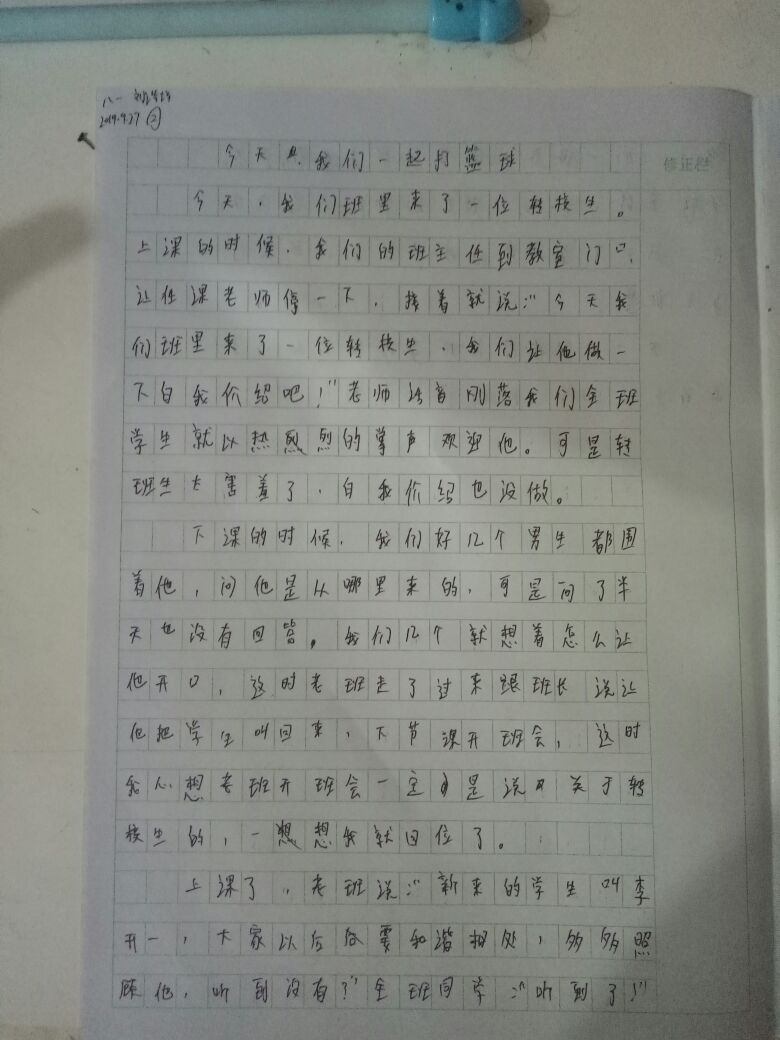 八一
2019.9.27 ②
修正栏
今天与我们一起打篮球
今天，我们班里来了一位转校生。
上课的时候，我们的班主任到教室门口，
让任课老师停一下，接着就说：“今天我
们班里来了一位转校生，我们让他做一
下自我价绍吧！”老师话音刚落我们全班
学生就以热烈烈的掌声欢迎他。可是转
班生太害羞了，自我价绍也没做。
下课的时候，我们好几个男生都围
着他，问他是从哪里来的，可是问了半
天也没有回答。我们几个就想着怎么让
他开口，这时老班走了过来跟班长说让
他把学生叫回来，下节课开班会，这时
我心想老班开班会一定是说关于转
校生的，一想想我就回位了。
上课了，老班说：“新来的学生叫李
开一，大家以后要和谐相处，多多照
顾他，听到没有？”全班同学：“听到了！”